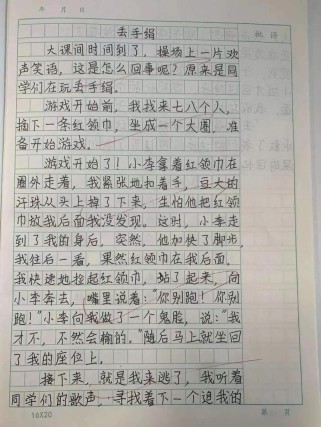 年 月 日
批语
去手绢
大课间时间到了，操场上一片欢
声笑语，这是怎么回事呢？原来是同
学们在玩丢手绢。
游戏开始前，我找来七八个人，
摘下一条红领巾，坐成一个大圈，准
备开始游戏。
游戏开始了！小李拿着红领巾在
圈外走着，我紧张地扣着手，豆大的
汗珠从头上掉了下来，生怕他把红领
巾放我后面我没发现。这时，小李走
到了我的身后，突然，他加快了脚步，
我往后一看，果然红领巾在我后面。
我快速地捡起红领巾，站了起来，向
小李奔去，嘴里说着：“你别跑！你别
跑！”小李向我做了一个鬼脸，说：“我
才不，不然会输的。”随后马上就坐回
了我的座位上。
接下来，就是我来逃了，我听着
同学们的歌声，寻找着下一个追我的
16X20
第 页